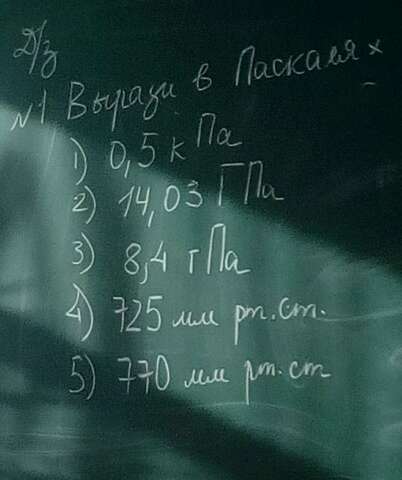 Д/з
№1 Вырази в Паскалях
1) 0,5 кПа
2) 14,03 ГПа
3) 8,4 гПа
4) 725 мм рт.ст.
5) 770 мм рт.ст